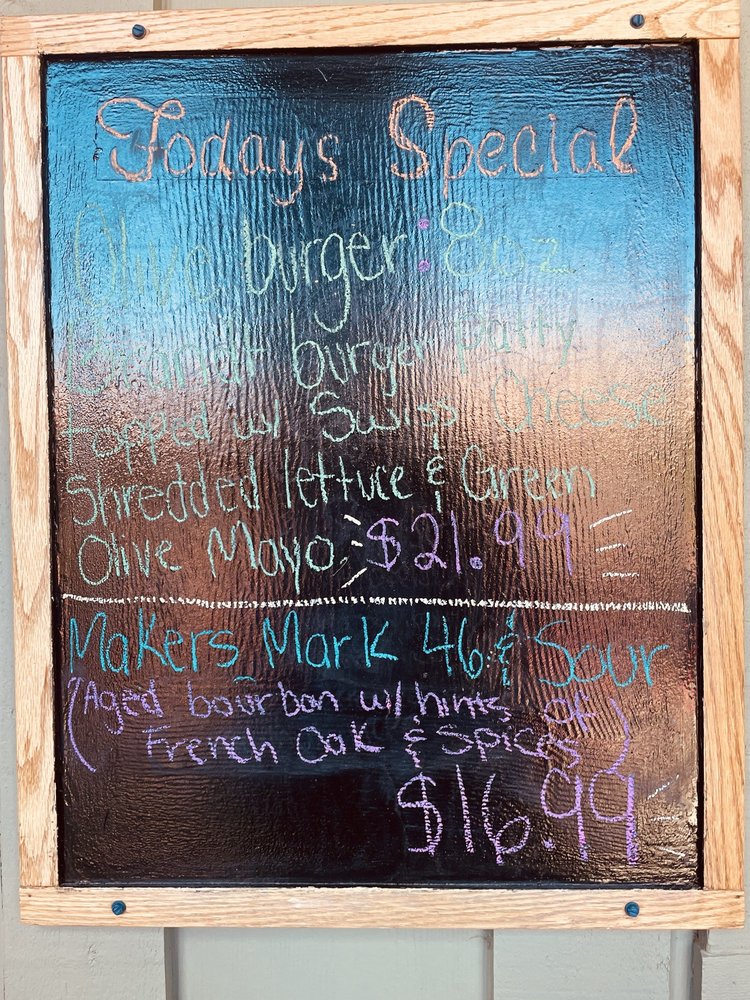 Todays Special
Olive burger: 8oz
Brandt burger patty
topped w/ Swiss Cheese
Shredded lettuce & Green
Olive Mayo $21.99
Makers Mark 46 & Sour
(Aged bourbon w/ hints of
French Oak & Spices)
$16.99